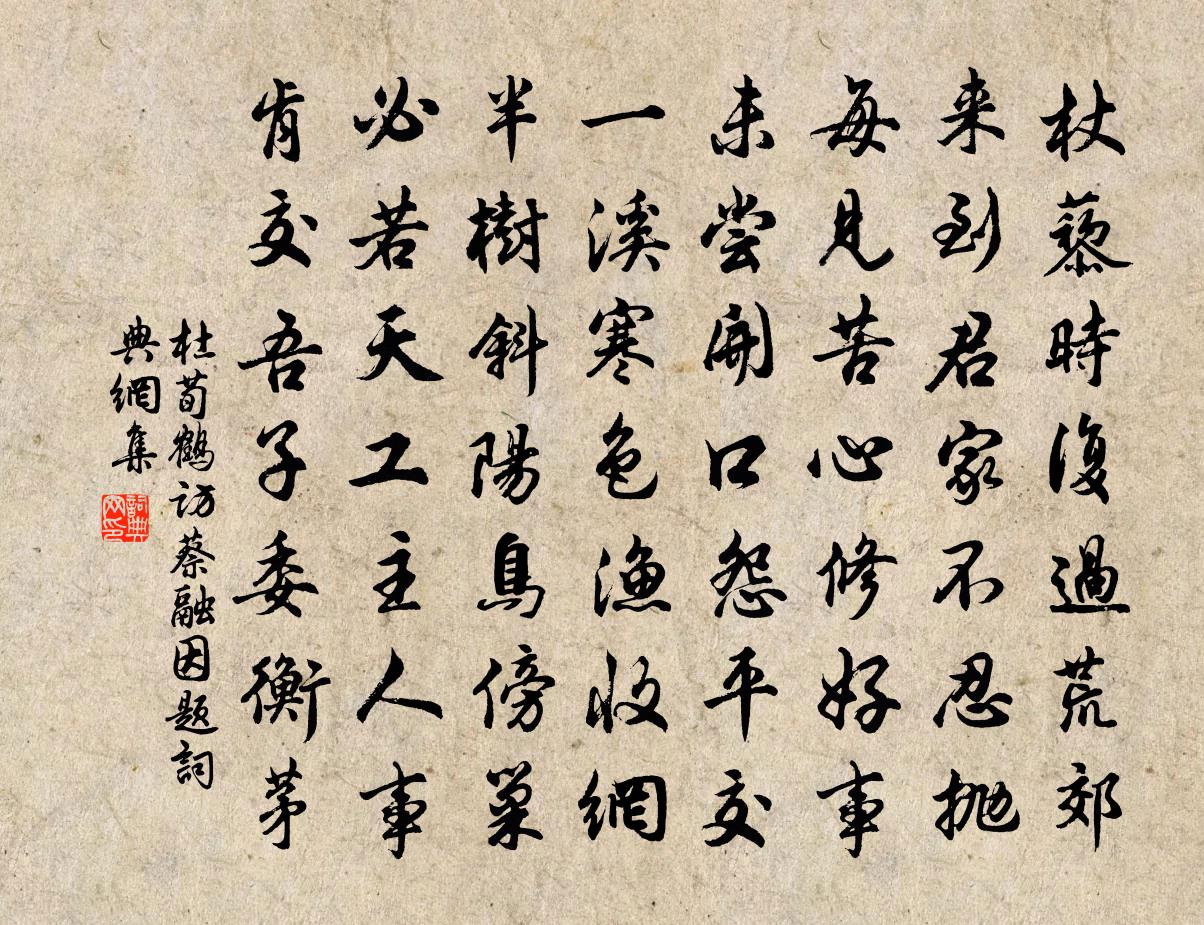 杖藜時復過荒郊
来到君家不忍抛
每見苦心修好事
未嘗開口怨平交
一溪寒色漁收網
半樹斜陽鳥傍巢
必若天工主人事
肯交吾子委衡茅
杜荀鶴访蔡融因题詞
典網集
詞典
网印